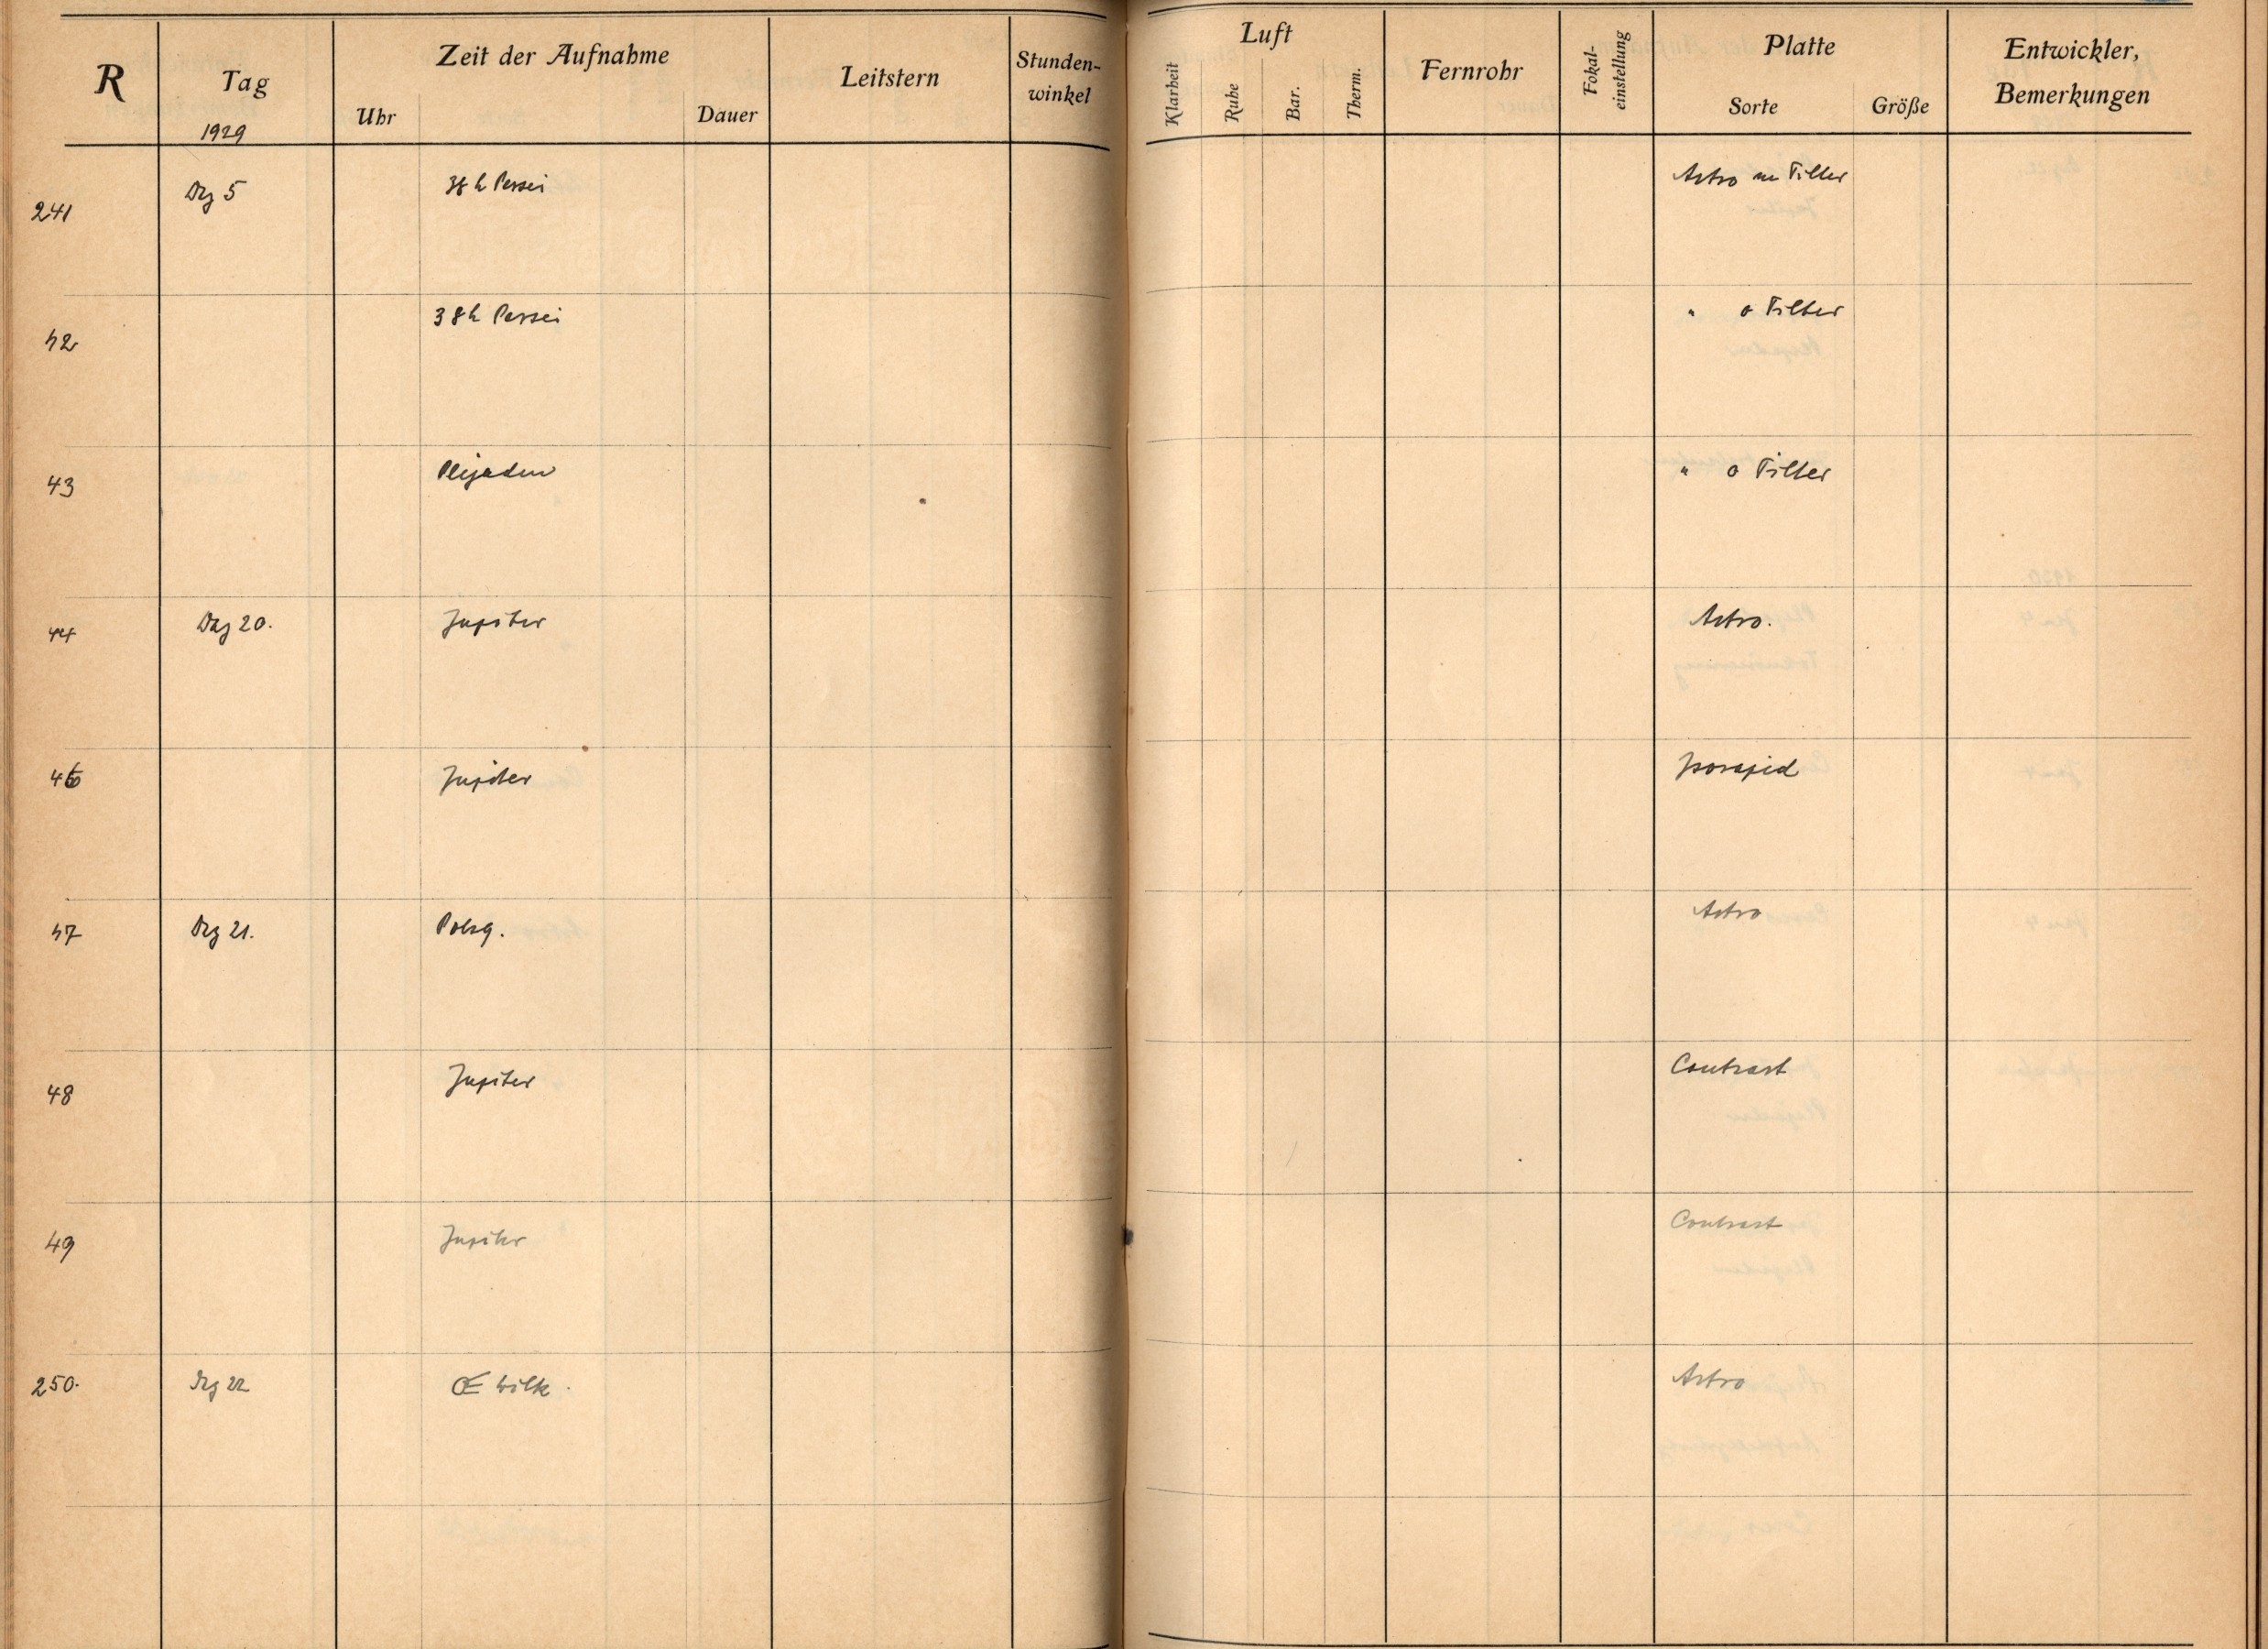 R Tag Zeit der Aufnahme Leitstern Stunden-winkel Luft Fernrohr Fokal-einstellung Platte Entwickler, Bemerkungen
Uhr Dauer Klarheit Ruhe Bar. Therm. Sorte Größe
1929
241 Dez 5 h Persei Astro m Filter
42 h Persei " o Filter
43 Plejaden " o Filter
44 Dez 20. Jupiter Astro.
46 Jupiter Isorapid
47 Dez 21. Polsq. Astro
48 Jupiter Contrast
49 Jupiter Contrast
250. Dez 22 Wilk. Astro